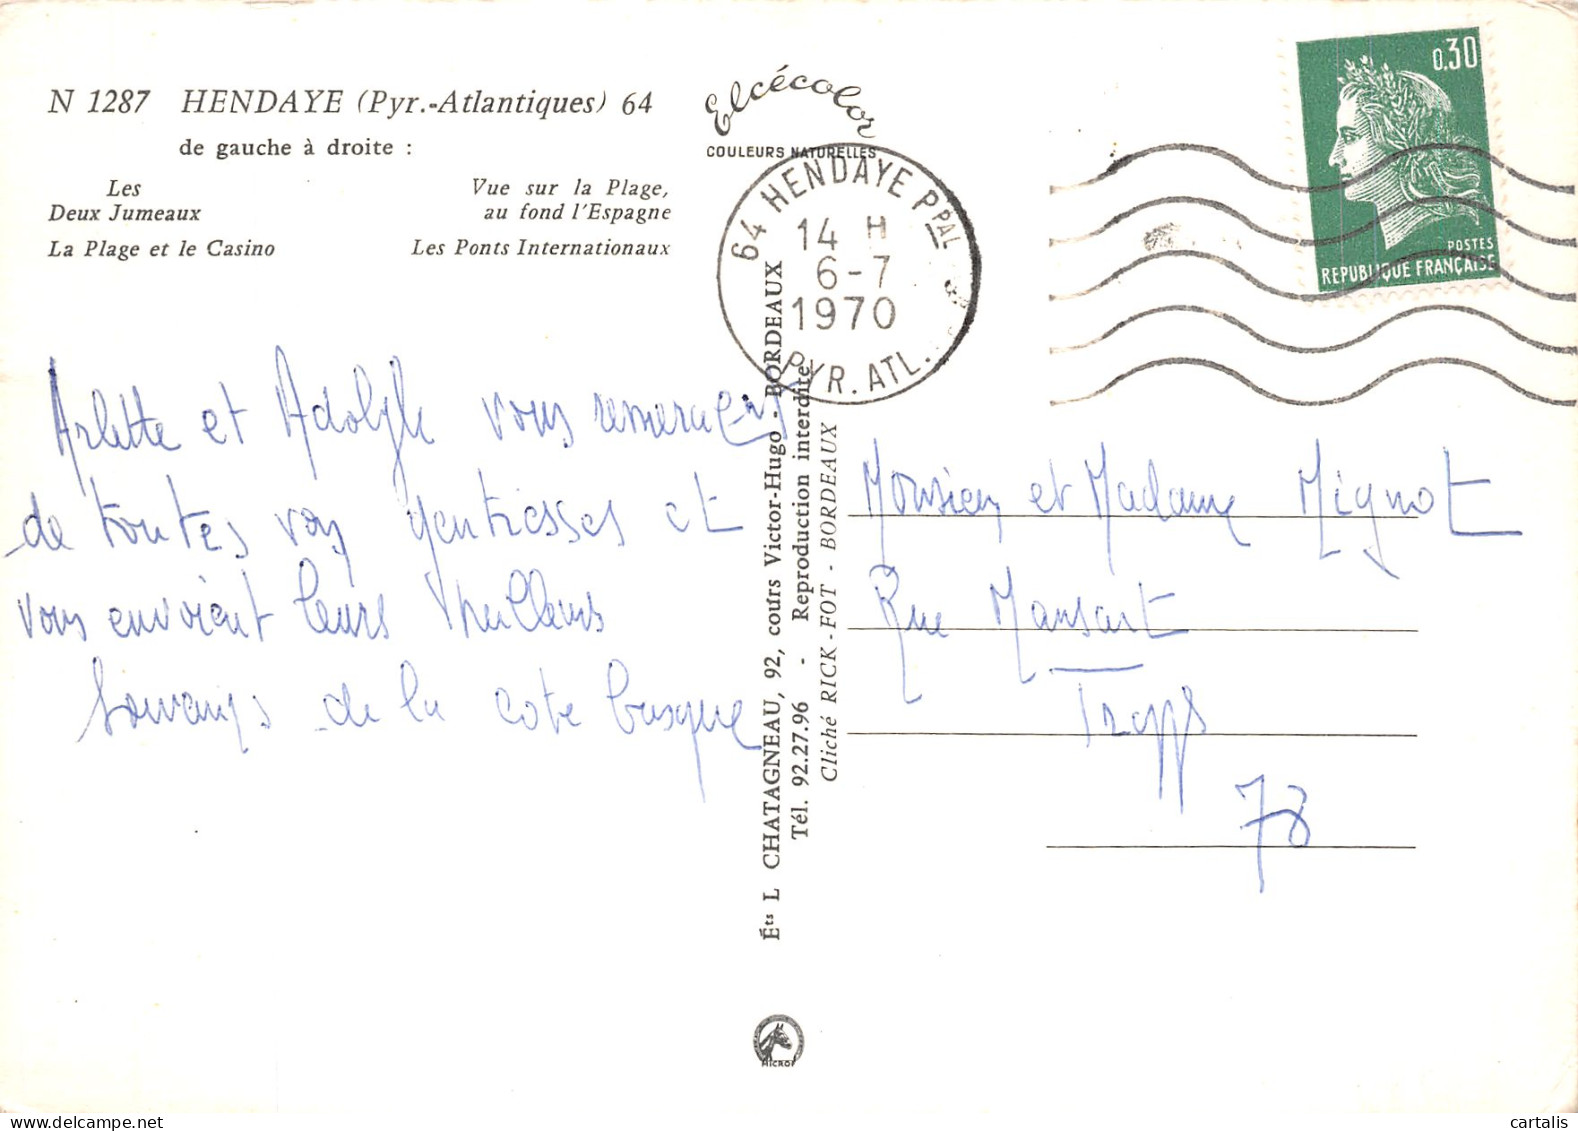 N 1287 HENDAYE (Pyr.-Atlantiques) 64
de gauche à droite :
Les
Deux Jumeaux
La Plage et le Casino
Vue sur la Plage,
au fond l'Espagne
Les Ponts Internationaux
Elcécolor
COULEURS NATURELLES
64 HENDAYE PPAL
14 H
6-7
1970
PYR. ATL.
0,30
POSTES
REPUBLIQUE FRANÇAISE
Arlette et Adolphe vous remercient
de toutes vos gentiesses et
vous envoient leurs meilleurs
de la cote basque
Éts L CHATAGNEAU, 92, cours Victor-Hugo - BORDEAUX
Tél. 92.27.96 - Reproduction interdite
Cliché RICK-FOT - BORDEAUX
Monsieur et Madame Mignot
Rue Mansart
Trappes
78
cartalis